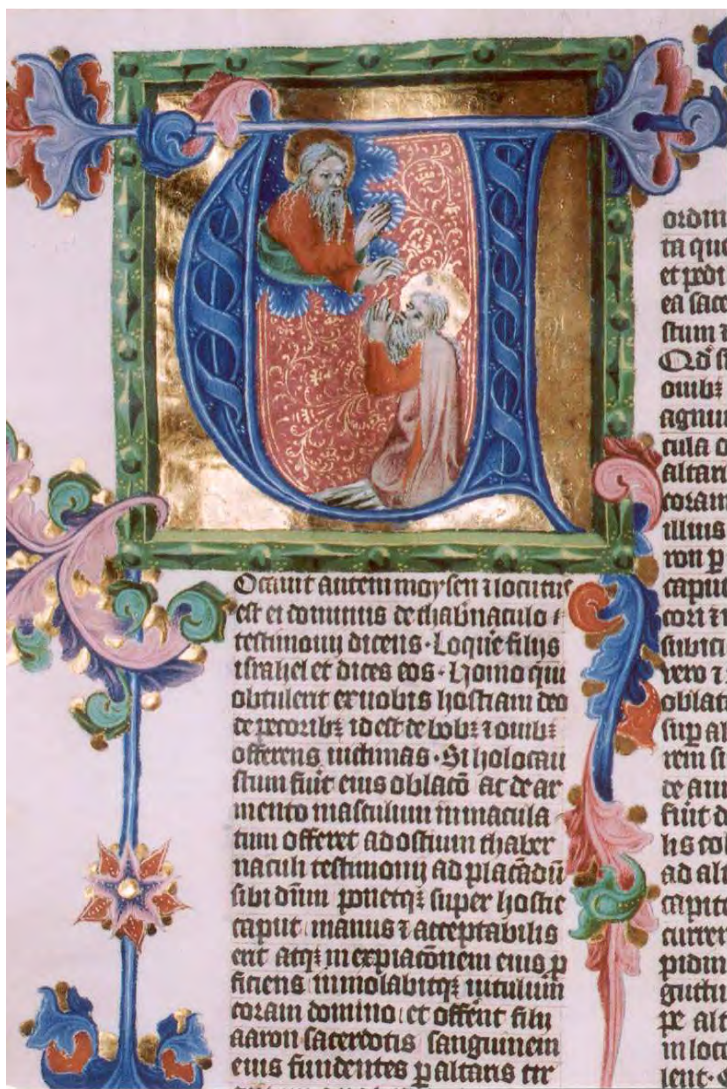 V
Ocauit autem moysen ⁊ locutus
est ei dominus de thab̄naculo
testimonij dicens · Loqu̅e filijs
israhel et dices eos · Homo qui
obtulerit ex uobis hostiam deo
de pecoribꝫ id est de bobꝫ ⁊ ouibꝫ
offerens uictimas · Si holocau
stum fūit eius oblacō ac de ar
mento masculum inmacula
tum offeret ad ostium thaber
naculi testimonij ad placādū
sibi dn̄m ponetqꝫ super hostie
caput manus ⁊ acceptabilis
erit atqꝫ in expiacōnem eius ꝓ
ficiens inmolabitqꝫ uitulum
coram domino et offerēt filij
aaron sacerdotis sanguinem
eius fundentes p altaris cir
ta que
et pedi
ea sace
stum
Qd si
ouibꝫ
agnu
cula o
altar
coram
illius
ron p
capu
subici
vero ⁊
oblat
sup al
de aui
fūit
ad alt
capit
curre
pidin
guttu
pe alt
in loc
lent ·